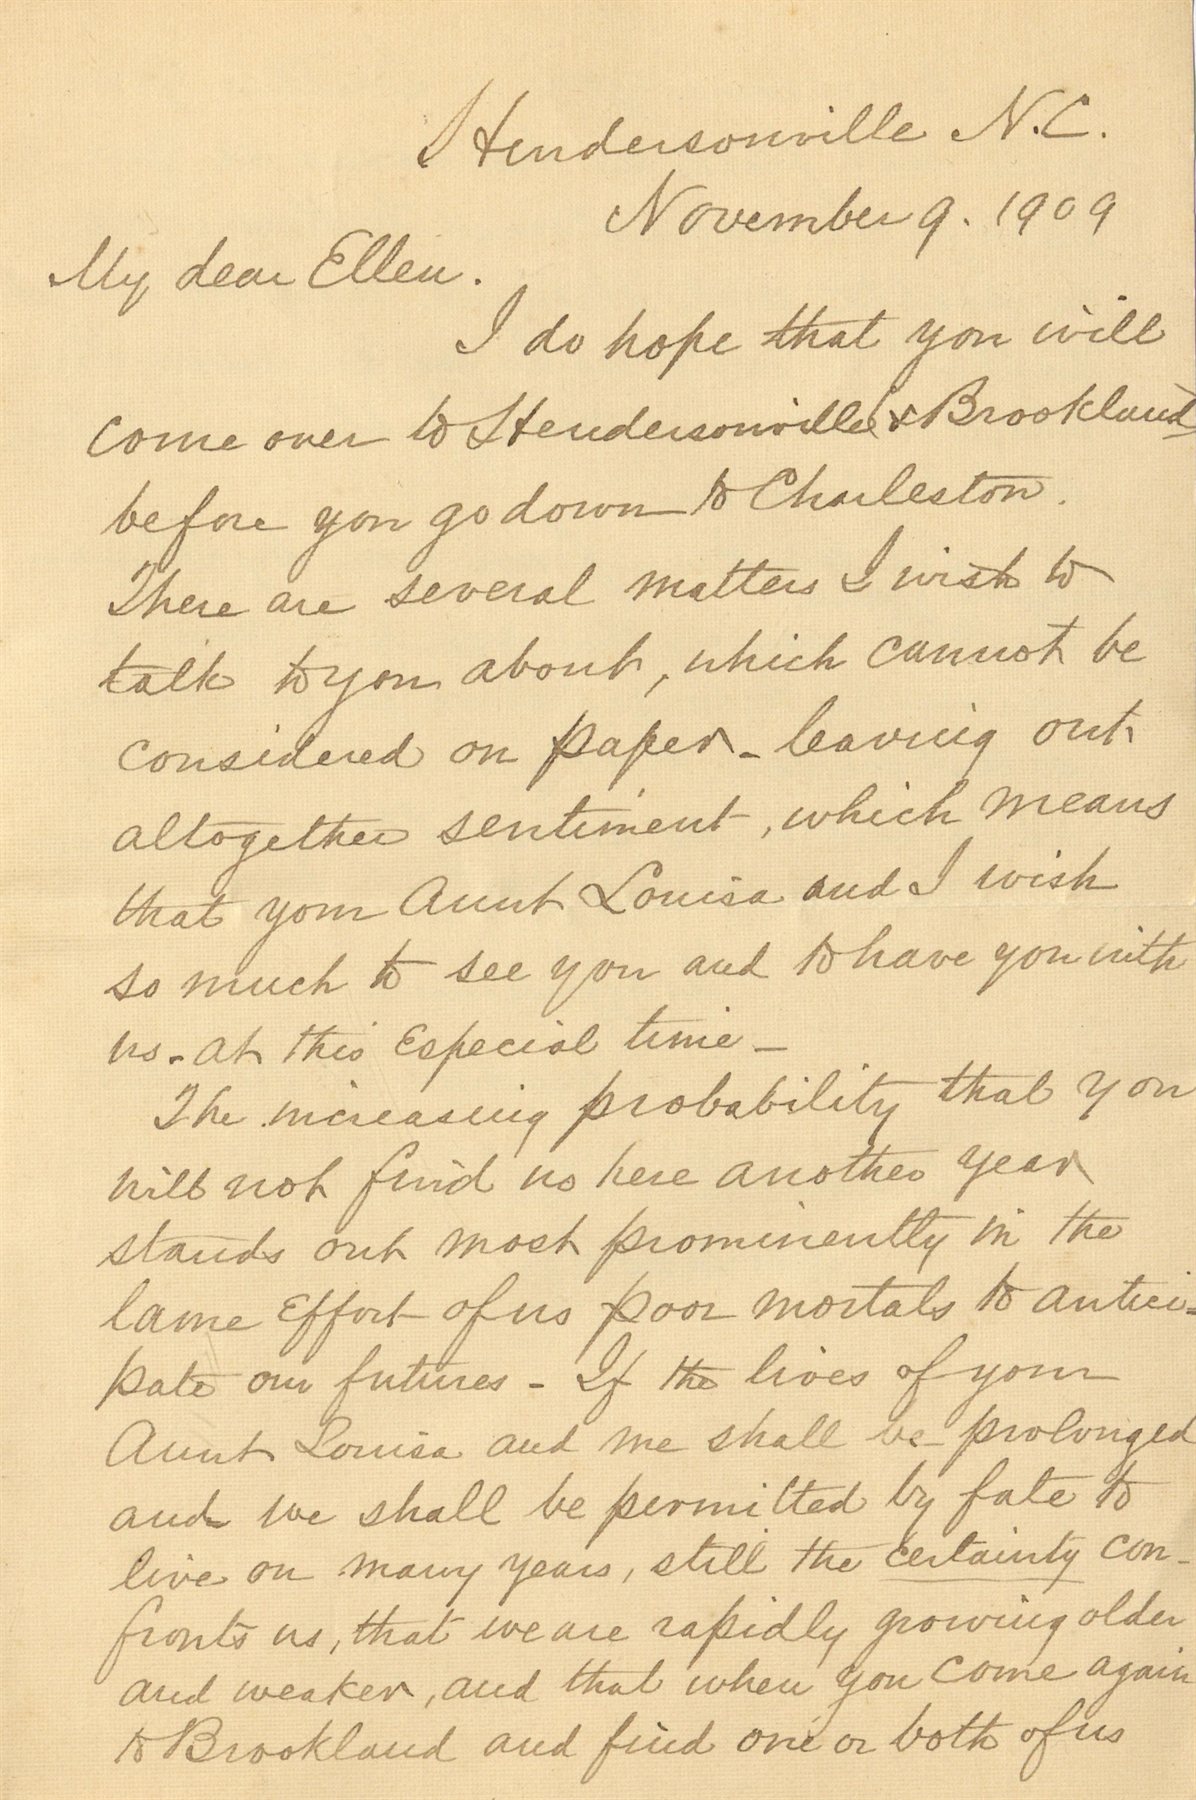 Hendersonville N.C.
November 9. 1909
My dear Ellen.
I do hope that you will
come over to Hendersonville (& Brookland)
before you go down to Charleston.
There are several matters I wish to
talk to you about, which cannot be
considered on paper - leaving out
altogether sentiment, which means
that your Aunt Louisa and I wish
so much to see you and to have you with
us - at this especial time -
The increasing probability that you
will not find us here another year
stands out most prominently in the
lame effort of us poor mortals to antici-
pate our futures - If the lives of your
Aunt Louisa and me shall be prolonged
and we shall be permitted by fate to
live on many years, still the certainty con-
fronts us, that we are rapidly growing older
and weaker, and that when you come again
to Brookland and find one or both of us